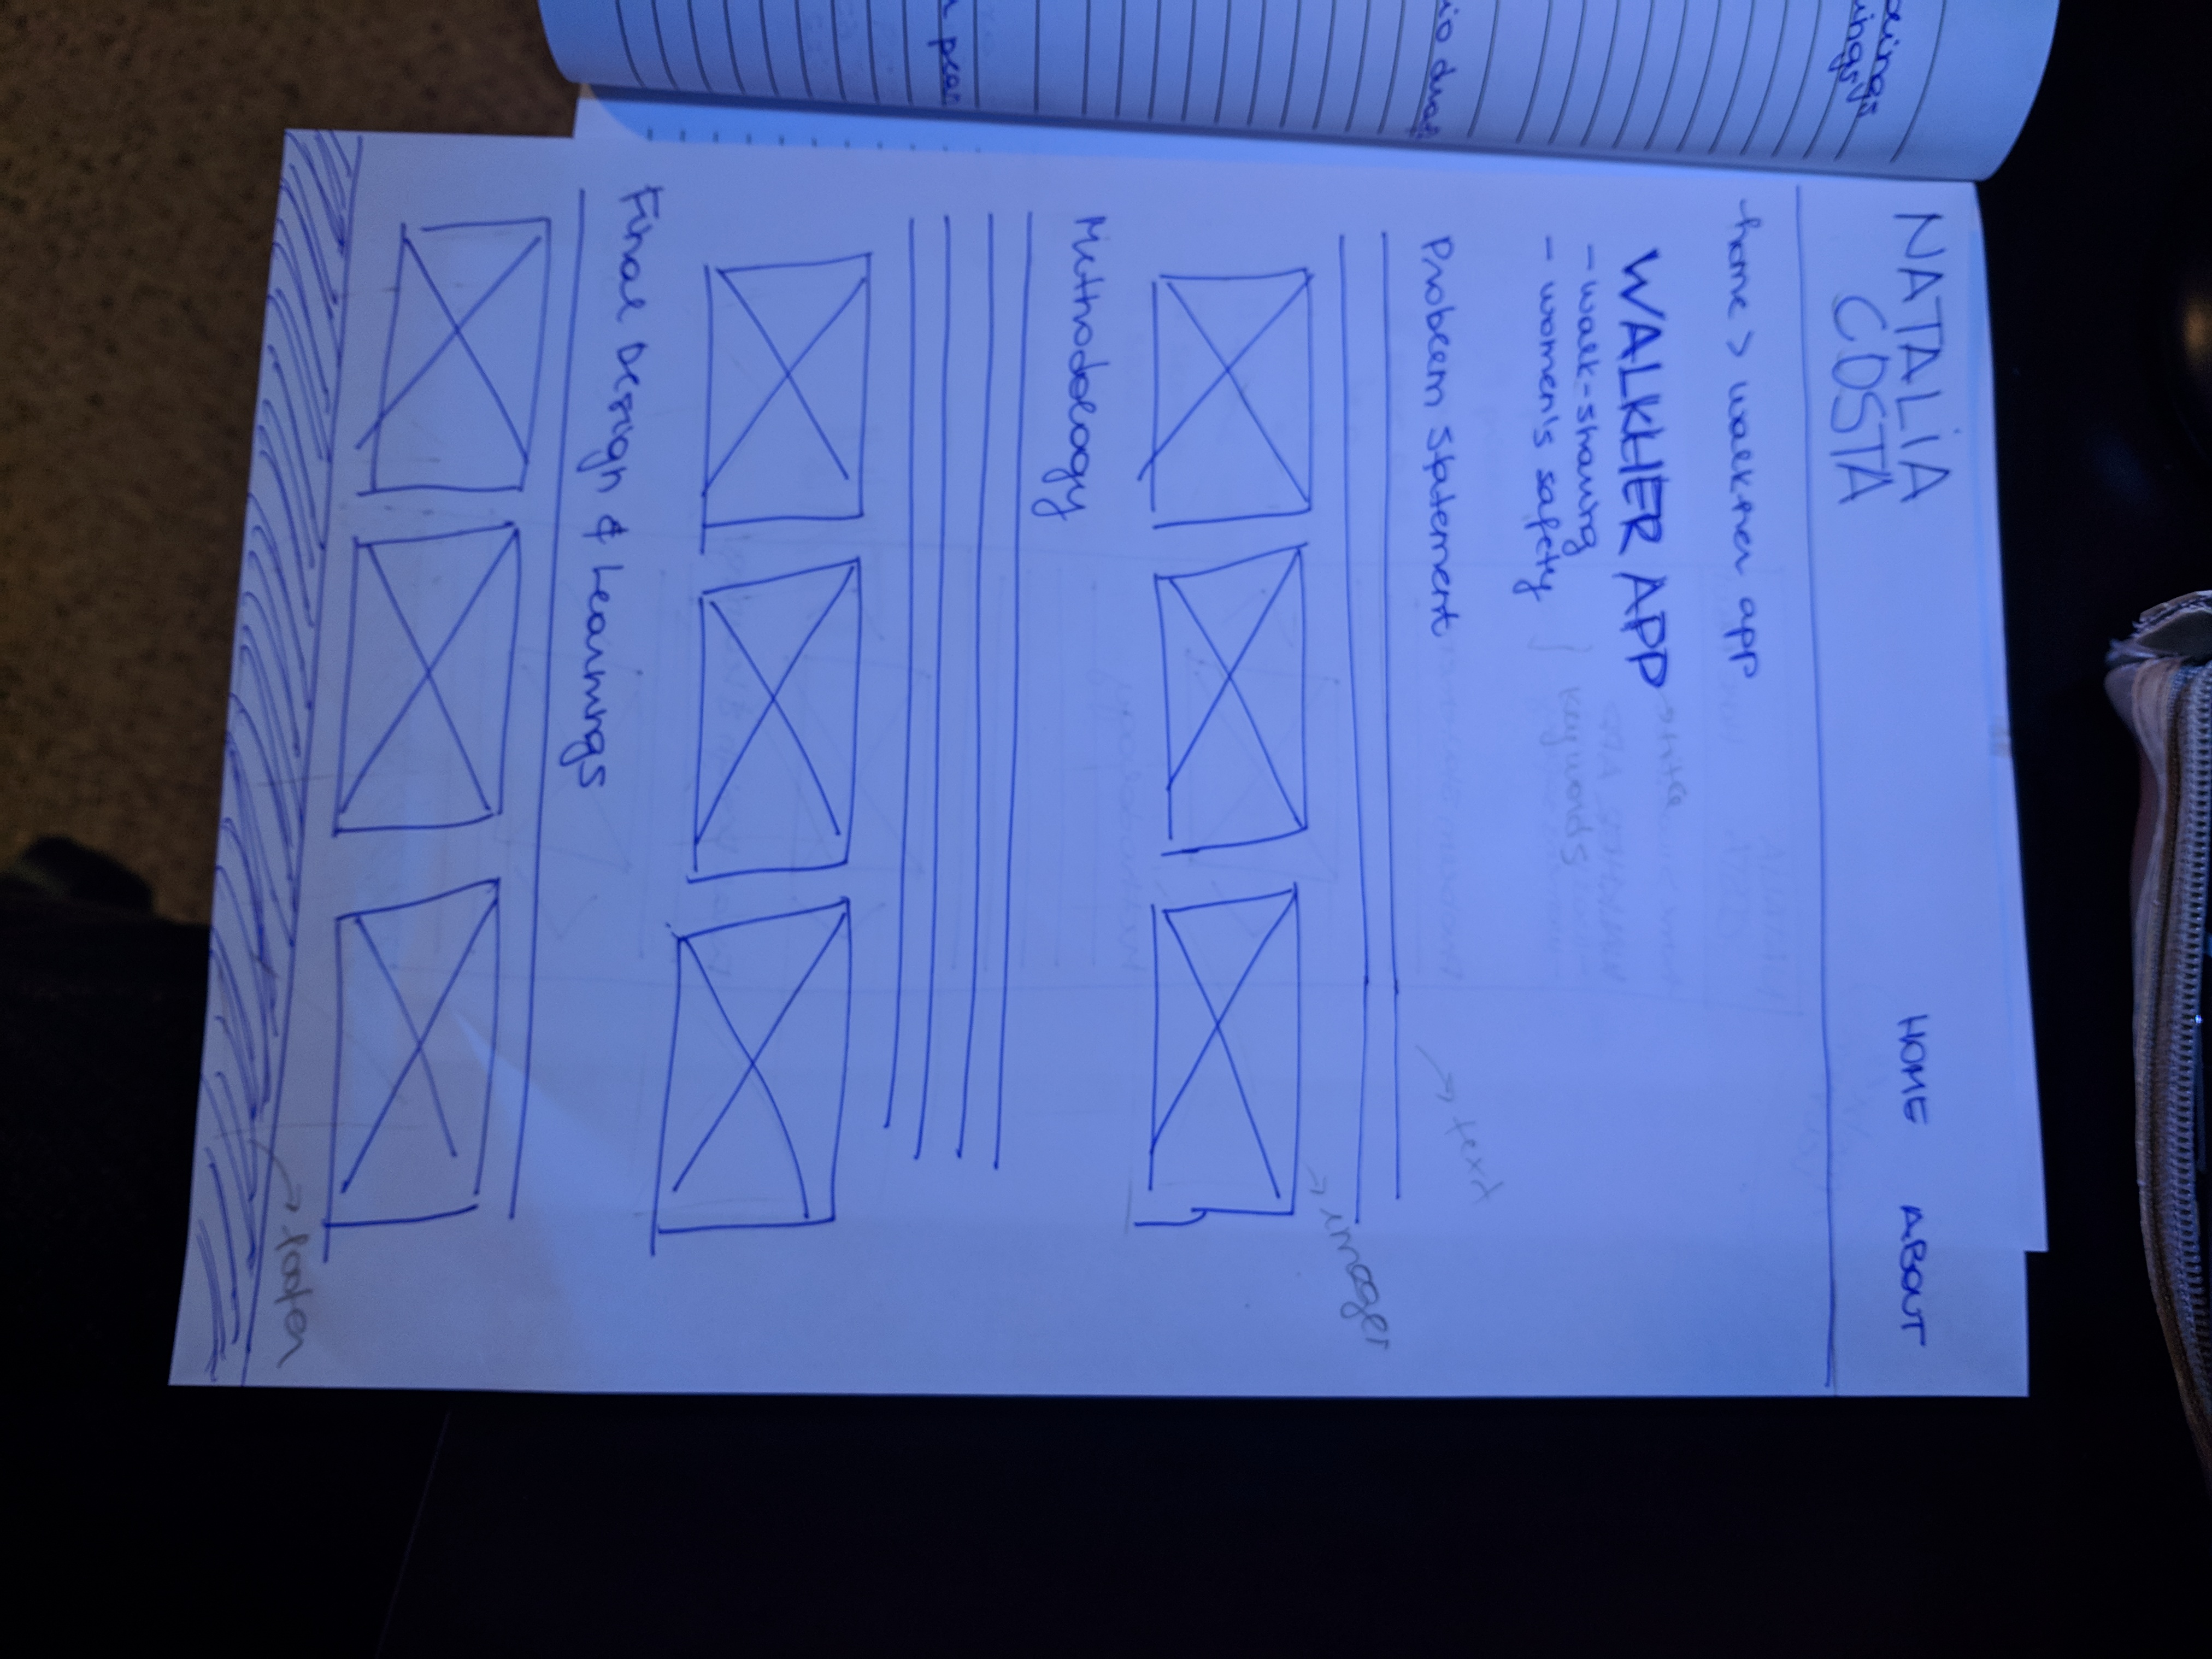 NATALIA
COSTA
HOME ABOUT
home > walkher app
WALKHER APP → title
- walk-sharing
- women's safety
keywords
Problem Statement
→ text
→ images
Methodology
Final Design & Learnings
→ footer